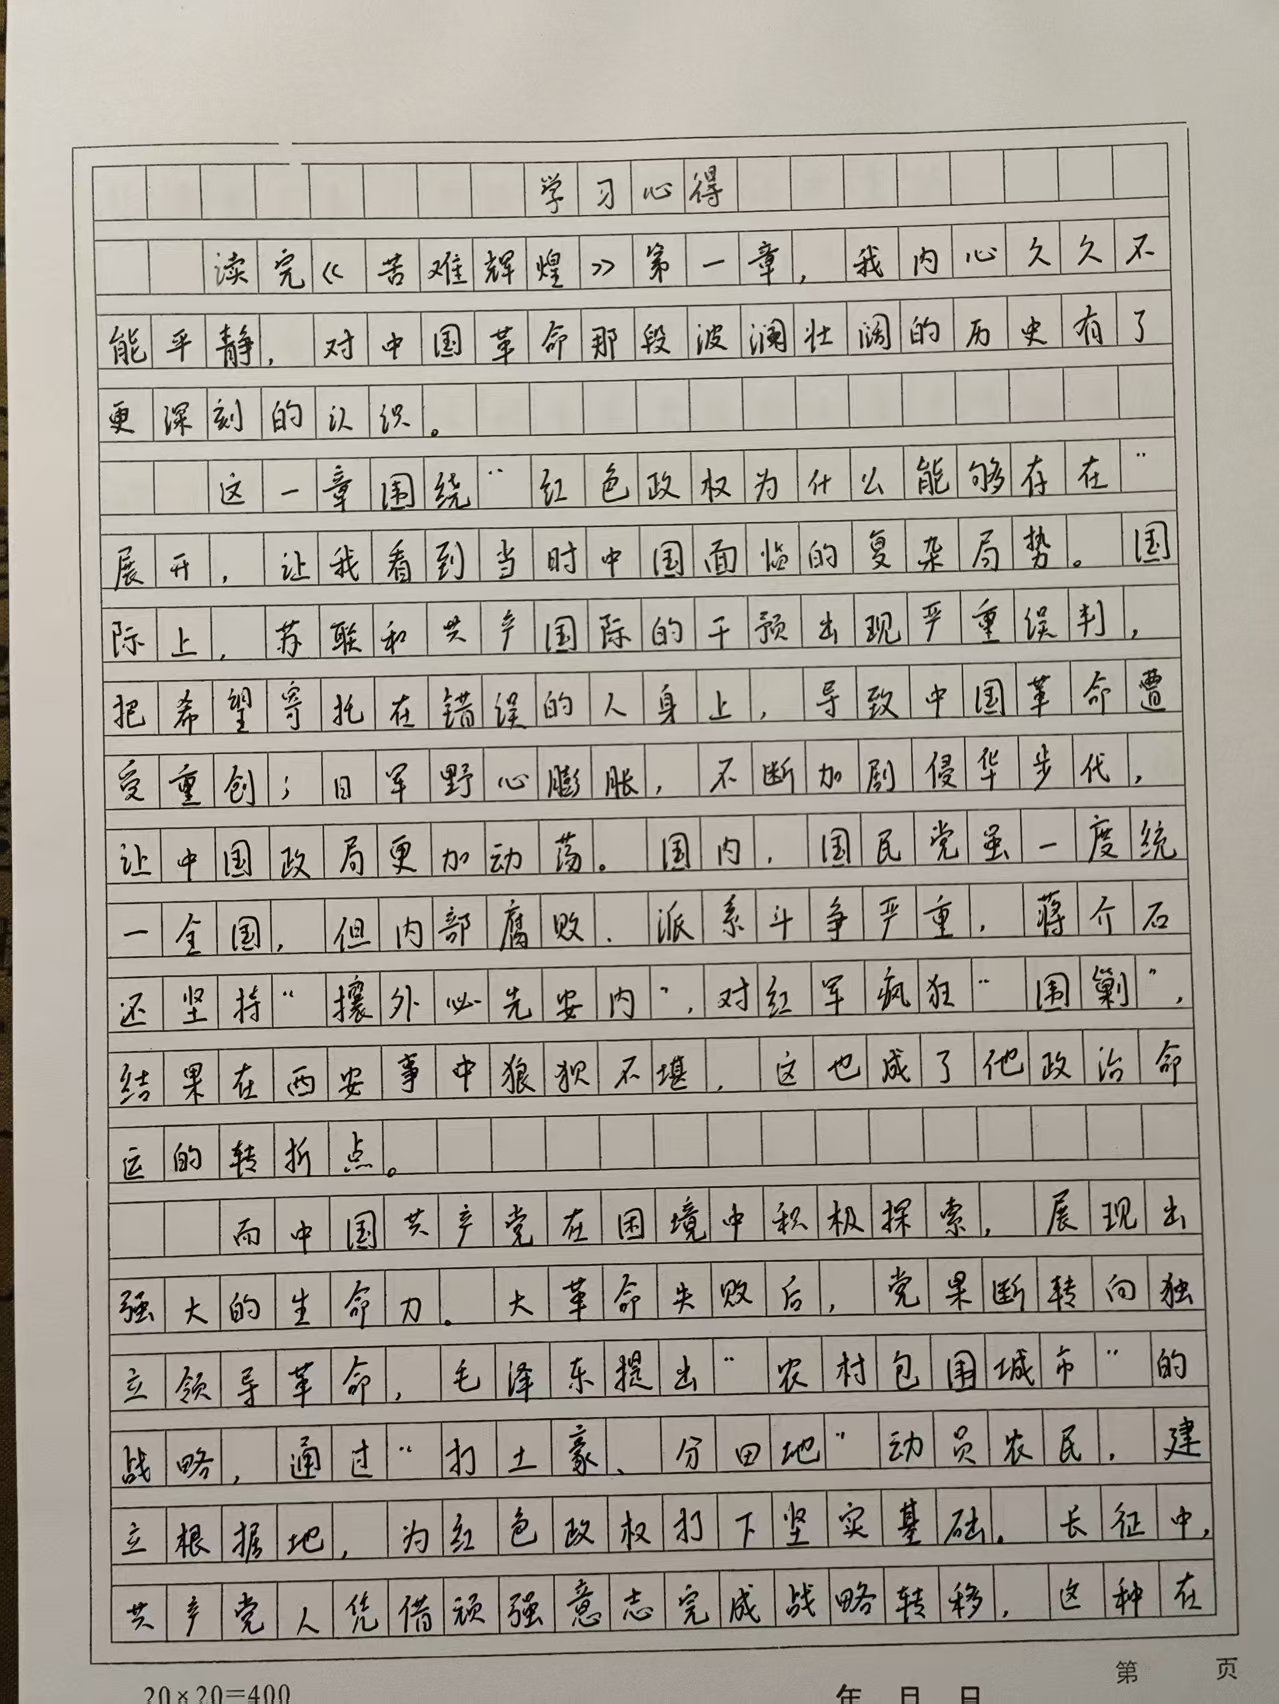 学习心得
读完《苦难辉煌》第一章,我内心久久不
能平静,对中国革命那段波澜壮阔的历史有了
更深刻的认识。
这一章围绕“红色政权为什么能够存在”
展开,让我看到当时中国面临的复杂局势。国
际上,苏联和共产国际的干预出现严重误判,
把希望寄托在错误的人身上,导致中国革命遭
受重创;日军野心膨胀,不断加剧侵华步伐,
让中国政局更加动荡。国内,国民党虽一度统
一全国,但内部腐败、派系斗争严重,蒋介石
还坚持“攘外必先安内”,对红军疯狂“围剿”,
结果在西安事中狼狈不堪,这也成了他政治命
运的转折点。
而中国共产党在困境中积极探索,展现出
强大的生命力。大革命失败后,党果断转向独
立领导革命,毛泽东提出“农村包围城市”的
战略,通过“打土豪、分田地”动员农民,建
立根据地,为红色政权打下坚实基础。长征中,
共产党人凭借顽强意志完成战略转移,这种在
第 页
20×20=400
年 月 日